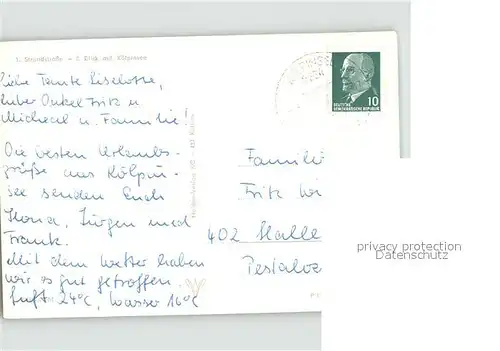 1. Strandstraße – 2. Blick auf Kölpinsee
Liebe Tante Liselotte,
lieber Onkel Fritz u.
Michael u. Familie.
Die besten Urlaubs-
grüße aus Kölpin-
see senden Euch
Ilona, Jürgen und
Frank.
Mit dem Wetter haben
wir es gut getroffen.
Luft 24°C, Wasser 16°C
10
DEUTSCHE
DEMOKRATISCHE REPUBLIK
Familie
Fritz Wi
402 Halle
Pestaloz
privacy protection
Datenschutz